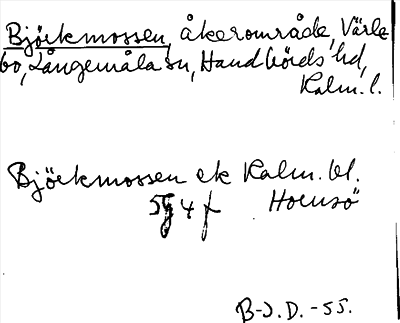 Björkmossen, åkerområde, Värle
bo, Långemåla sn, Handbörds hd,
Kalm. l.
Björkmossen ek Kalm. bl.
5g 4 f Hornsö
B-J.D. -55.